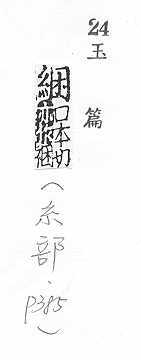 24
玉篇
綑口本切
(糸部.p385)